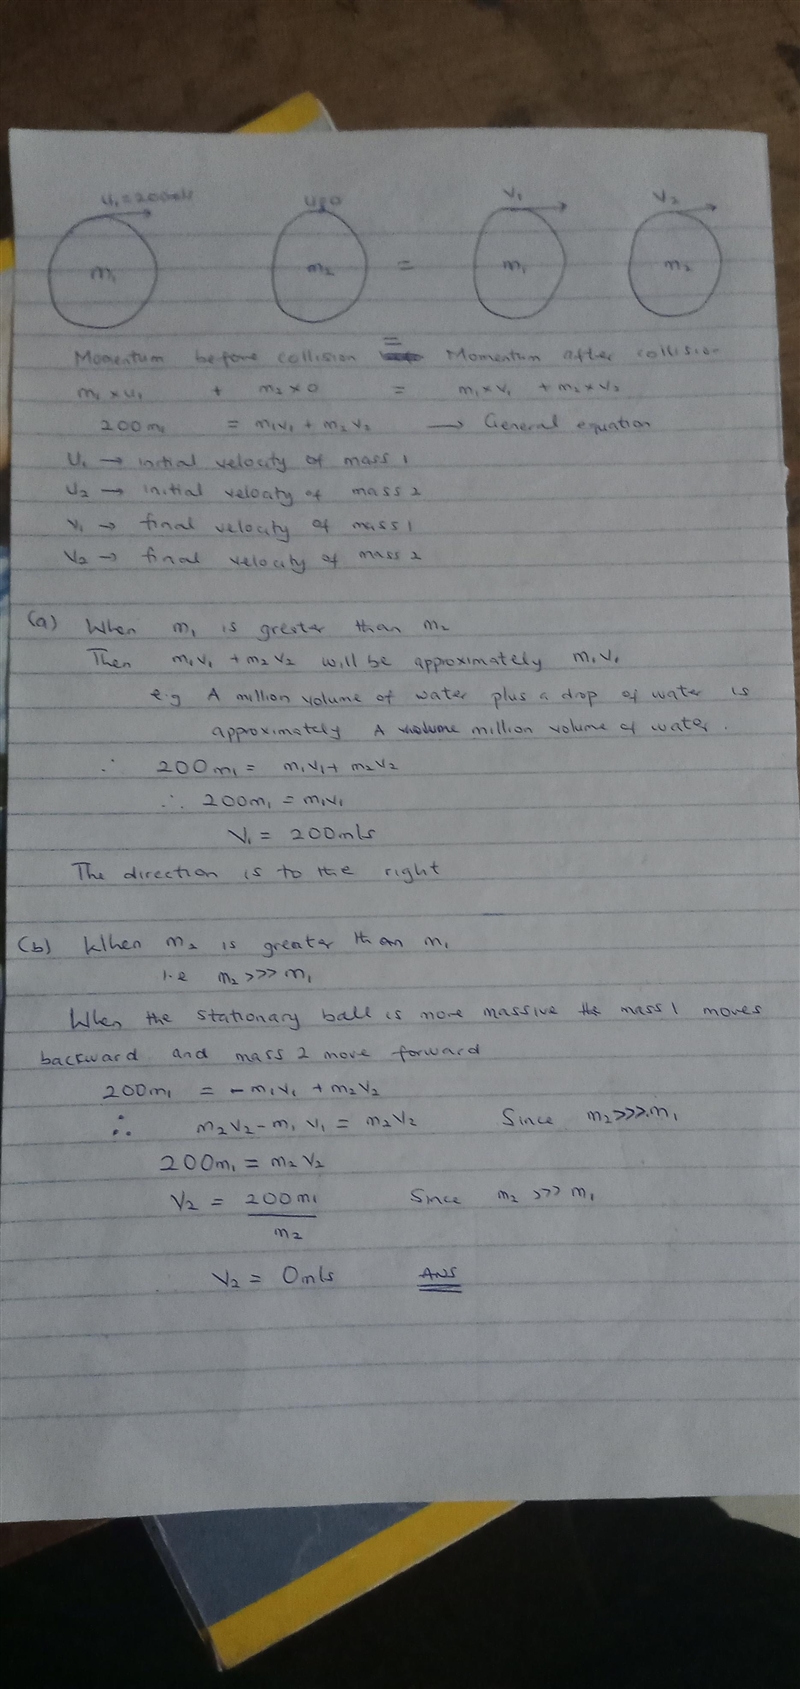 U₁=200m/s U₂=0 V₁ V₂
m₁ m₂ = m₁ m₂
Momentum before collision = Momentum after collision
m₁ x u₁ + m₂ x 0 = m₁ x v₁ + m₂ x v₂
200m₁ = m₁v₁ + m₂v₂ → General equation
U₁ → initial velocity of mass 1
U₂ → initial velocity of mass 2
V₁ → final velocity of mass 1
V₂ → final velocity of mass 2
(a) When m₁ is greater than m₂
Then m₁v₁ + m₂v₂ will be approximately m₁v₁
e.g A million volume of water plus a drop of water is
approximately A million volume of water.
∴ 200m₁ = m₁v₁ + m₂v₂
∴ 200m₁ = m₁v₁
V₁ = 200m/s
The direction is to the right
(b) When m₂ is greater than m₁
i.e m₂ >>> m₁
When the stationary ball is more massive the mass 1 moves
backward and mass 2 move forward
200m₁ = -m₁v₁ + m₂v₂
∴ m₂v₂ - m₁v₁ = m₂v₂ Since m₂>>>m₁
200m₁ = m₂v₂
V₂ = 200m₁ Since m₂ >>> m₁
m₂
V₂ = 0m/s ANS